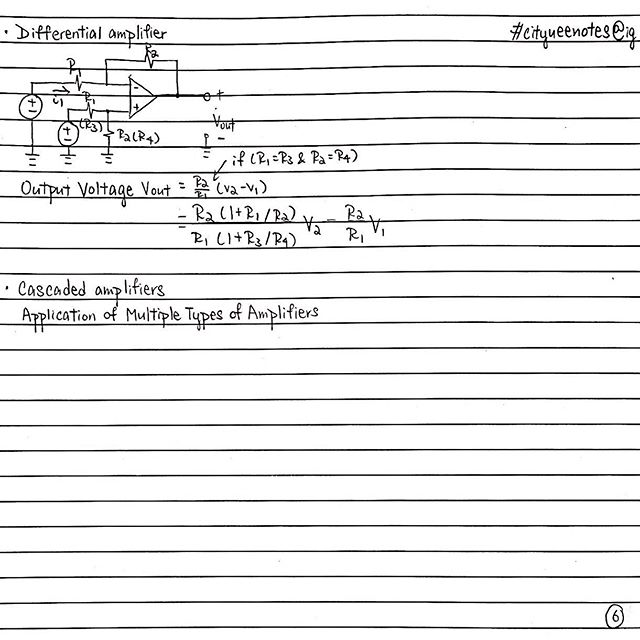 · Differential amplifier
#cityueenotes@ig
R2
R1
i1
R1
(R3)
R2(R4)
+
Vout
-
if (R1=R3 & R2=R4)
Output Voltage Vout = R2/R1 (V2-V1)
= R2 (1+R1/R2) / R1 (1+R3/R4) V2 - R2/R1 V1
· Cascaded amplifiers
Application of Multiple Types of Amplifiers
6